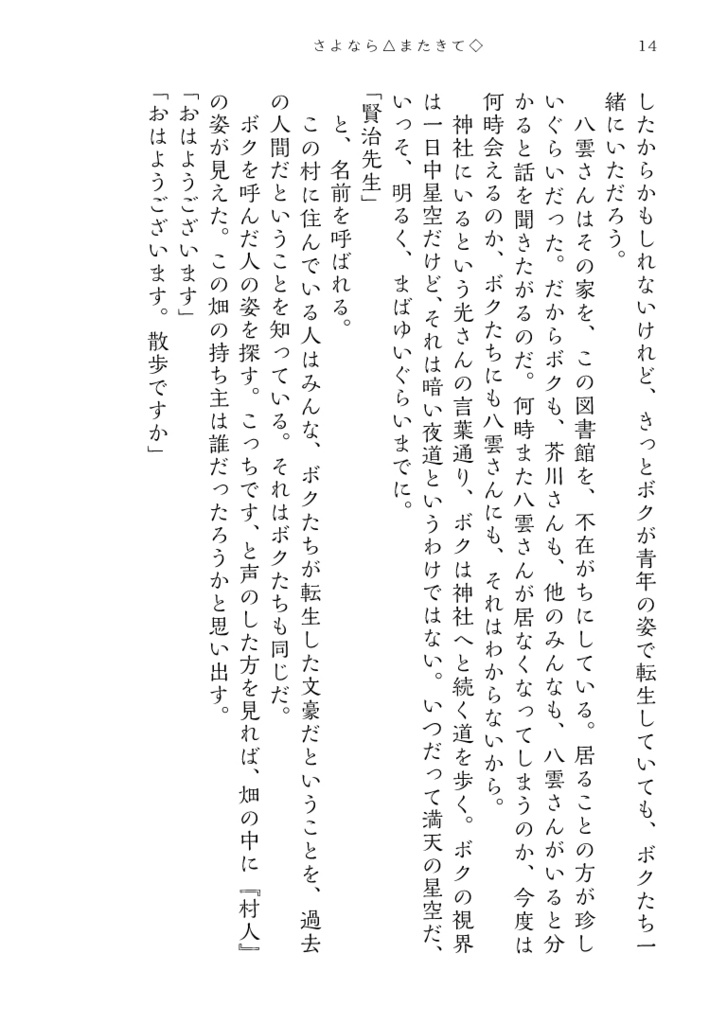 さよなら△またきて◇
14
したからかもしれないけれど、きっとボクが青年の姿で転生していても、ボクたち一
緒にいただろう。
　八雲さんはその家を、この図書館を、不在がちにしている。居ることの方が珍し
いぐらいだった。だからボクも、芥川さんも、他のみんなも、八雲さんがいると分
かると話を聞きたがるのだ。何時また八雲さんが居なくなってしまうのか、今度は
何時会えるのか、ボクたちにも八雲さんにも、それはわからないから。
　神社にいるという光さんの言葉通り、ボクは神社へと続く道を歩く。ボクの視界
は一日中星空だけど、それは暗い夜道というわけではない。いつだって満天の星空だ、
いっそ、明るく、まばゆいぐらいまでに。
「賢治先生」
　と、名前を呼ばれる。
　この村に住んでいる人はみんな、ボクたちが転生した文豪だということを、過去
の人間だということを知っている。それはボクたちも同じだ。
　ボクを呼んだ人の姿を探す。こっちです、と声のした方を見れば、畑の中に『村人』
の姿が見えた。この畑の持ち主は誰だったろうかと思い出す。
「おはようございます」
「おはようございます。散歩ですか」